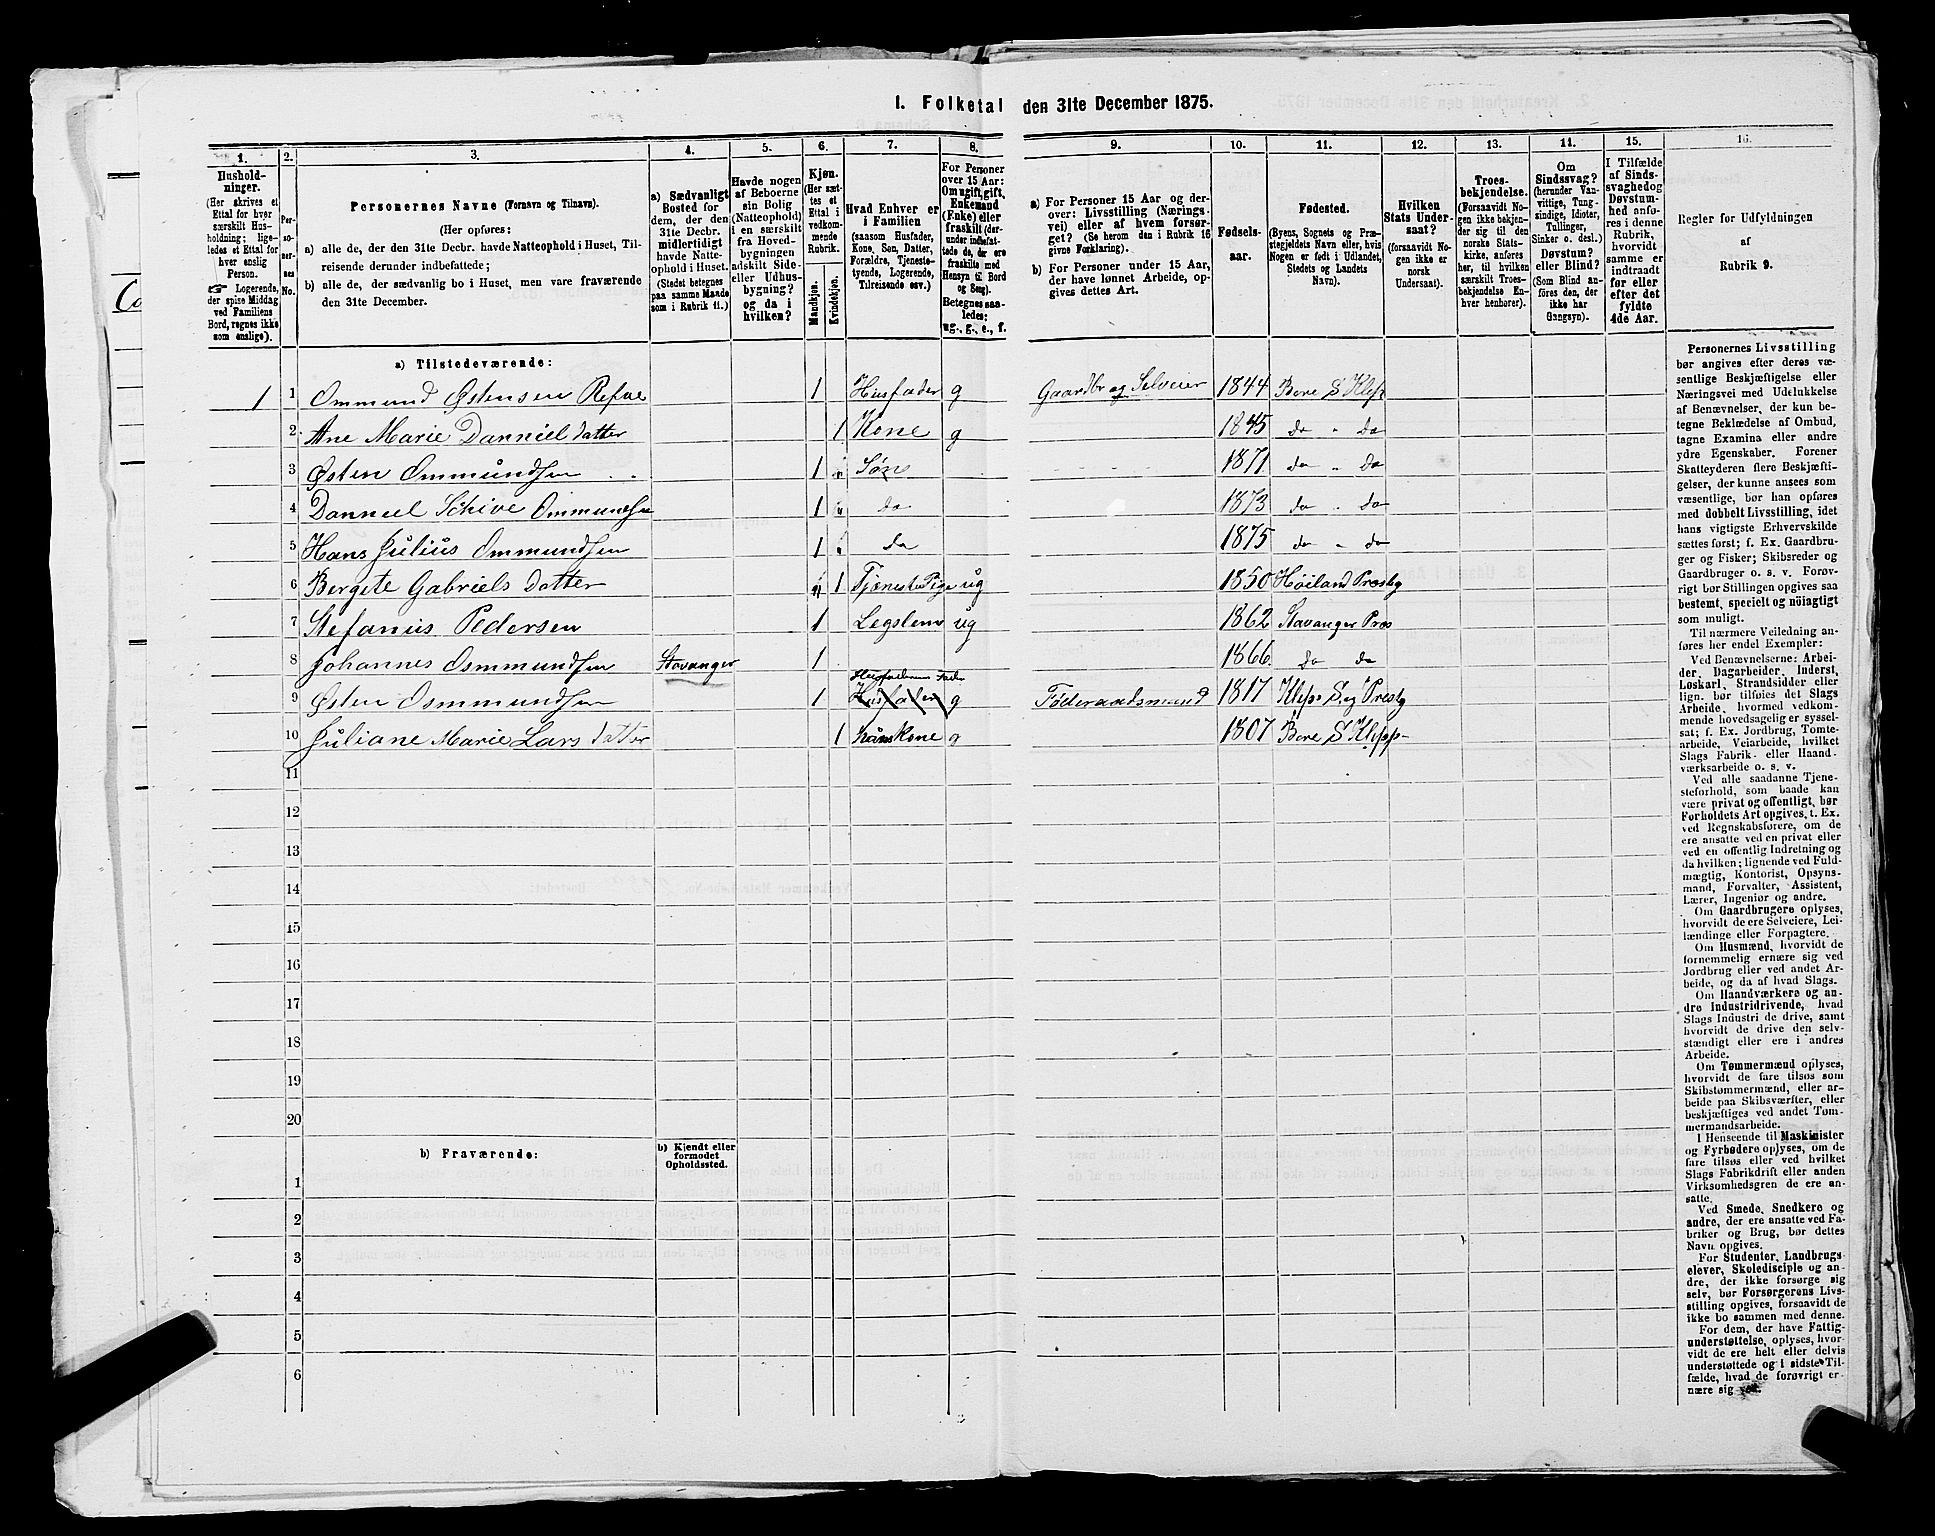 1. Folketal den 31te December 1875.
1. 2. 3. 4. 5. 6. 7. 8. 9. 10. 11. 12. 13. 14. 15. 16.
Hushold-
ninger.
(Her skrives et
Ettal for hver
særskilt Hus-
holdning; lige-
ledes et Ettal for
hver enslig
Person.
☞ Logerende,
der spise Middag
ved Familiens
Bord, regnes ikke
som enslige).
Per-
so-
nernes
No.
Personernes Navne (Fornavn og Tilnavn).
(Her opføres:
a) alle de, der den 31te Decbr. havde Natteophold i Huset, Til-
reisende derunder indbefattede;
b) alle de, der sædvanlig bo i Huset, men vare fraværende
den 31te December.
a) Sædvanligt
Bosted for
dem, der den
31te Decbr.
midlertidigt
havde Natte-
ophold i Huset.
(Stedet betegnes
paa samme Maade
som i Rubrik 11.)
Havde nogen
af Beboerne
sin Bolig
(Natteophold)
i en særskilt
fra Hoved-
bygningen
adskilt Side-
eller Udhus-
bygning?
og da i
hvilken?
Kjøn.
(Her sæt-
tes et
Ettal i
vedkom-
mende
Rubrik.
Mandkjøn.
Kvindekjøn.
Hvad Enhver er
i Familien
(saasom Husfader,
Kone, Søn, Datter,
Forældre, Tjeneste-
tyende, Logerende,
Tilreisende osv.)
For Personer
over 15 Aar:
Om ugift, gift,
Enkemand
(Enke) eller
fraskilt (der-
under indbefat-
tede de, der ere
fraskilte med
Hensyn til Bord
og Seng).
Betegnes saa-
ledes:
ug., g., e., f.
a) For Personer 15 Aar og der-
over: Livsstilling (Nærings-
vei) eller af hvem forsør-
get? (Se herom den i Rubrik 16
givne Forklaring).
b) For Personer under 15 Aar,
der have lønnet Arbeide, op-
gives dettes Art.
Fødsels-
aar.
Fødested.
(Byens, Sognets og Præ-
stegjeldets Navn eller, hvis
Nogen er født i Udlandet,
Stedets og Landets
Navn).
Hvilken
Stats Under-
saat?
(forsaavidt No-
gen ikke er
norsk
Undersaat).
Troes-
bekjendelse.
(Forsaavidt No-
gen ikke bekjen-
der sig til den
norske Stats-
kirke, anføres
her, til hvilken
særskilt Troes-
bekjendelse En-
hver henhører).
Om
Sindssvag?
(herunder Van-
vittige, Tung-
sindige, Idioter,
Tullinger,
Sinker o. desl.)
Døvstum?
eller Blind?
(Som Blind an-
føres den, der
ikke har
Gangsyn).
I Tilfælde
af Sinds-
svaghed og
Døvstum-
hed anfø-
res i denne
Rubrik,
hvorvidt
samme er
indtraadt
før eller
efter det
fyldte
4de Aar.
Regler for Udfyldningen
af
Rubrik 9.
a) Tilstedeværende:
1 1 Ommund Østensen Refne 1 Husfader g Gaardbr og Selveier 1844 Bore S Klep
2 Ane Marie Danniel datter 1 Kone g 1845 do " do
3 Østen Ommundsen 1 Søn 1871 do " do
4 Danniel Schive Ommundsen 1 do 1873 do " do
5 Hans Julius Ommundsen 1 do 1875 do " do
6 Bergete Gabriels datter 1 Tjeneste Pige ug 1850 Høiland Præstg
7 Stefanus Pedersen 1 Legslem ug 1862 Stavanger Præs
8 Johannes Osmmundsen Stavanger 1 1866 do do
Husfaderens Fader
9 Østen Osmmundsen 1 Husfader g Føderaadsmand 1817 Klep S og Præstg
10 Juliane Marie Lars datter 1 hans Kone g 1807 Bore S Klepp
11
12
13
14
15
16
17
18
19
20
b) Fraværende:
b) Kjendt eller
formodet
Opholdssted.
1
2
3
4
5
6
Personernes Livsstilling
bør angives efter deres væ-
sentlige Beskjæftigelse eller
Næringsvei med Udelukkelse
af Benævnelser, der kun be-
tegne Beklædelse af Ombud,
tagne Examina eller andre
ydre Egenskaber. Forener
Skatteyderen flere Beskjæfti-
gelser, der kunne ansees som
væsentlige, bør han opføres
med dobbelt Livsstilling, idet
hans vigtigste Erhvervskilde
sættes først; f. Ex. Gaardbru-
ger og Fisker; Skibsreder og
Gaardbruger o. s. v. Forøv-
rigt bør Stillingen opgives saa
bestemt, specielt og nöiagtigt
som muligt.
Til nærmere Veiledning an-
føres her endel Exempler:
Ved Benævnelserne: Arbei-
der, Dagarbeider, Inderst,
Løskarl, Strandsidder eller
lign. bør tilføies det Slags
Arbeide, hvormed vedkom-
mende hovedsagelig er syssel-
sat; f. Ex. Jordbrug, Tomte-
arbeide, Veiarbeide, hvilket
Slags Fabrik- eller Haand-
værksarbeide o. s. v.
Ved alle saadanne Tjene-
steforhold, som baade kan
være privat og offentligt, bør
Forholdets Art opgives, t. Ex.
ved Regnskabsførere, om de
ere ansatte ved en privat eller
ved en offentlig Indretning og
da hvilken; lignende ved Fuld-
mægtig, Kontorist, Opsyns-
mand, Forvalter, Assistent,
Lærer, Ingeniør og andre.
Om Gaardbrugere oplyses,
hvorvidt de ere Selveiere, Lei-
lændinge eller Forpagtere.
Om Husmænd, hvorvidt de
fornemmelig ernære sig ved
Jordbrug eller ved andet Ar-
beide, og da af hvad Slags.
Om Haandværkere og an-
dre Industridrivende, hvad
Slags Industri de drive, samt
hvorvidt de drive den selv-
stændigt eller ere i andres
Arbeide.
Om Tømmermænd oplyses,
hvorvidt de fare tilsøs som
Skibstømmermænd, eller ar-
beide paa Skibsværfter, eller
beskjæftiges ved andet Tøm-
mermandsarbeide.
I Henseende til Maskinister
og Fyrbødere oplyses, om de
fare tilsøs eller ved hvilket
Slags Fabrikdrift eller anden
Virksomhedsgren de ere an-
satte.
Ved Smede, Snedkere og
andre, der ere ansatte ved Fa-
briker og Brug, bør dettes
Navn opgives.
For Studenter, Landbrugs-
elever, Skoledisciple og an-
dre, der ikke forsørge sig
selv, bør Forsørgerens Livs-
stilling opgives, forsaavidt de
ikke bo sammen med denne.
For dem, der have Fattig-
understøttelse, oplyses, hvor-
vidt de ere helt eller delvis
understøttede og i sidste Til-
fælde, hvad de forøvrigt er-
nære sig ved.